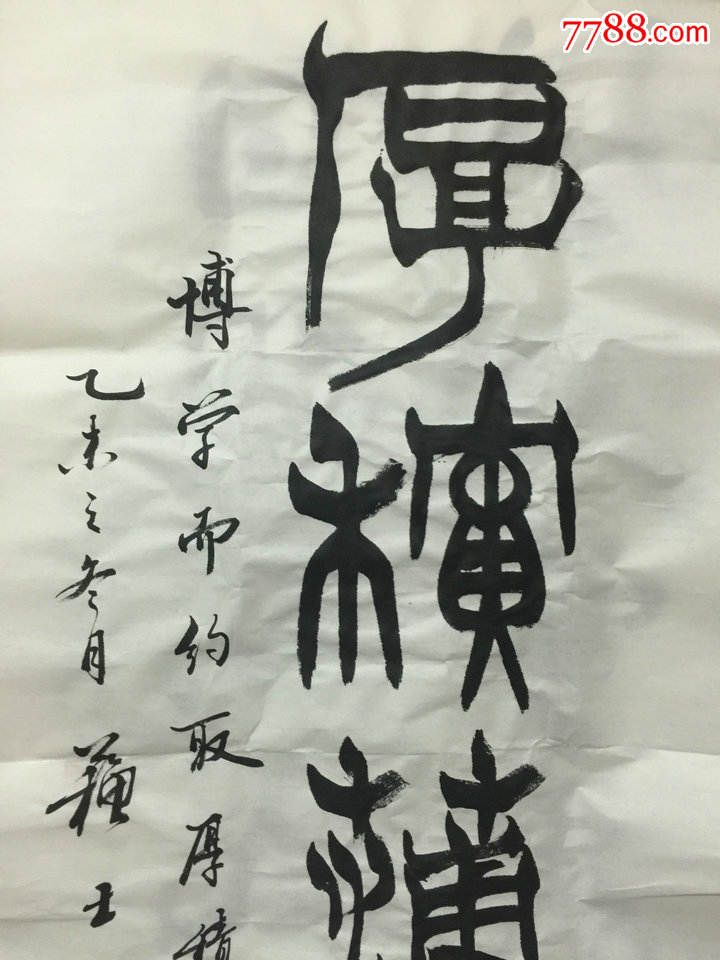 7788.com
厚積薄
博学而约取厚積
乙未之冬月 蘇士